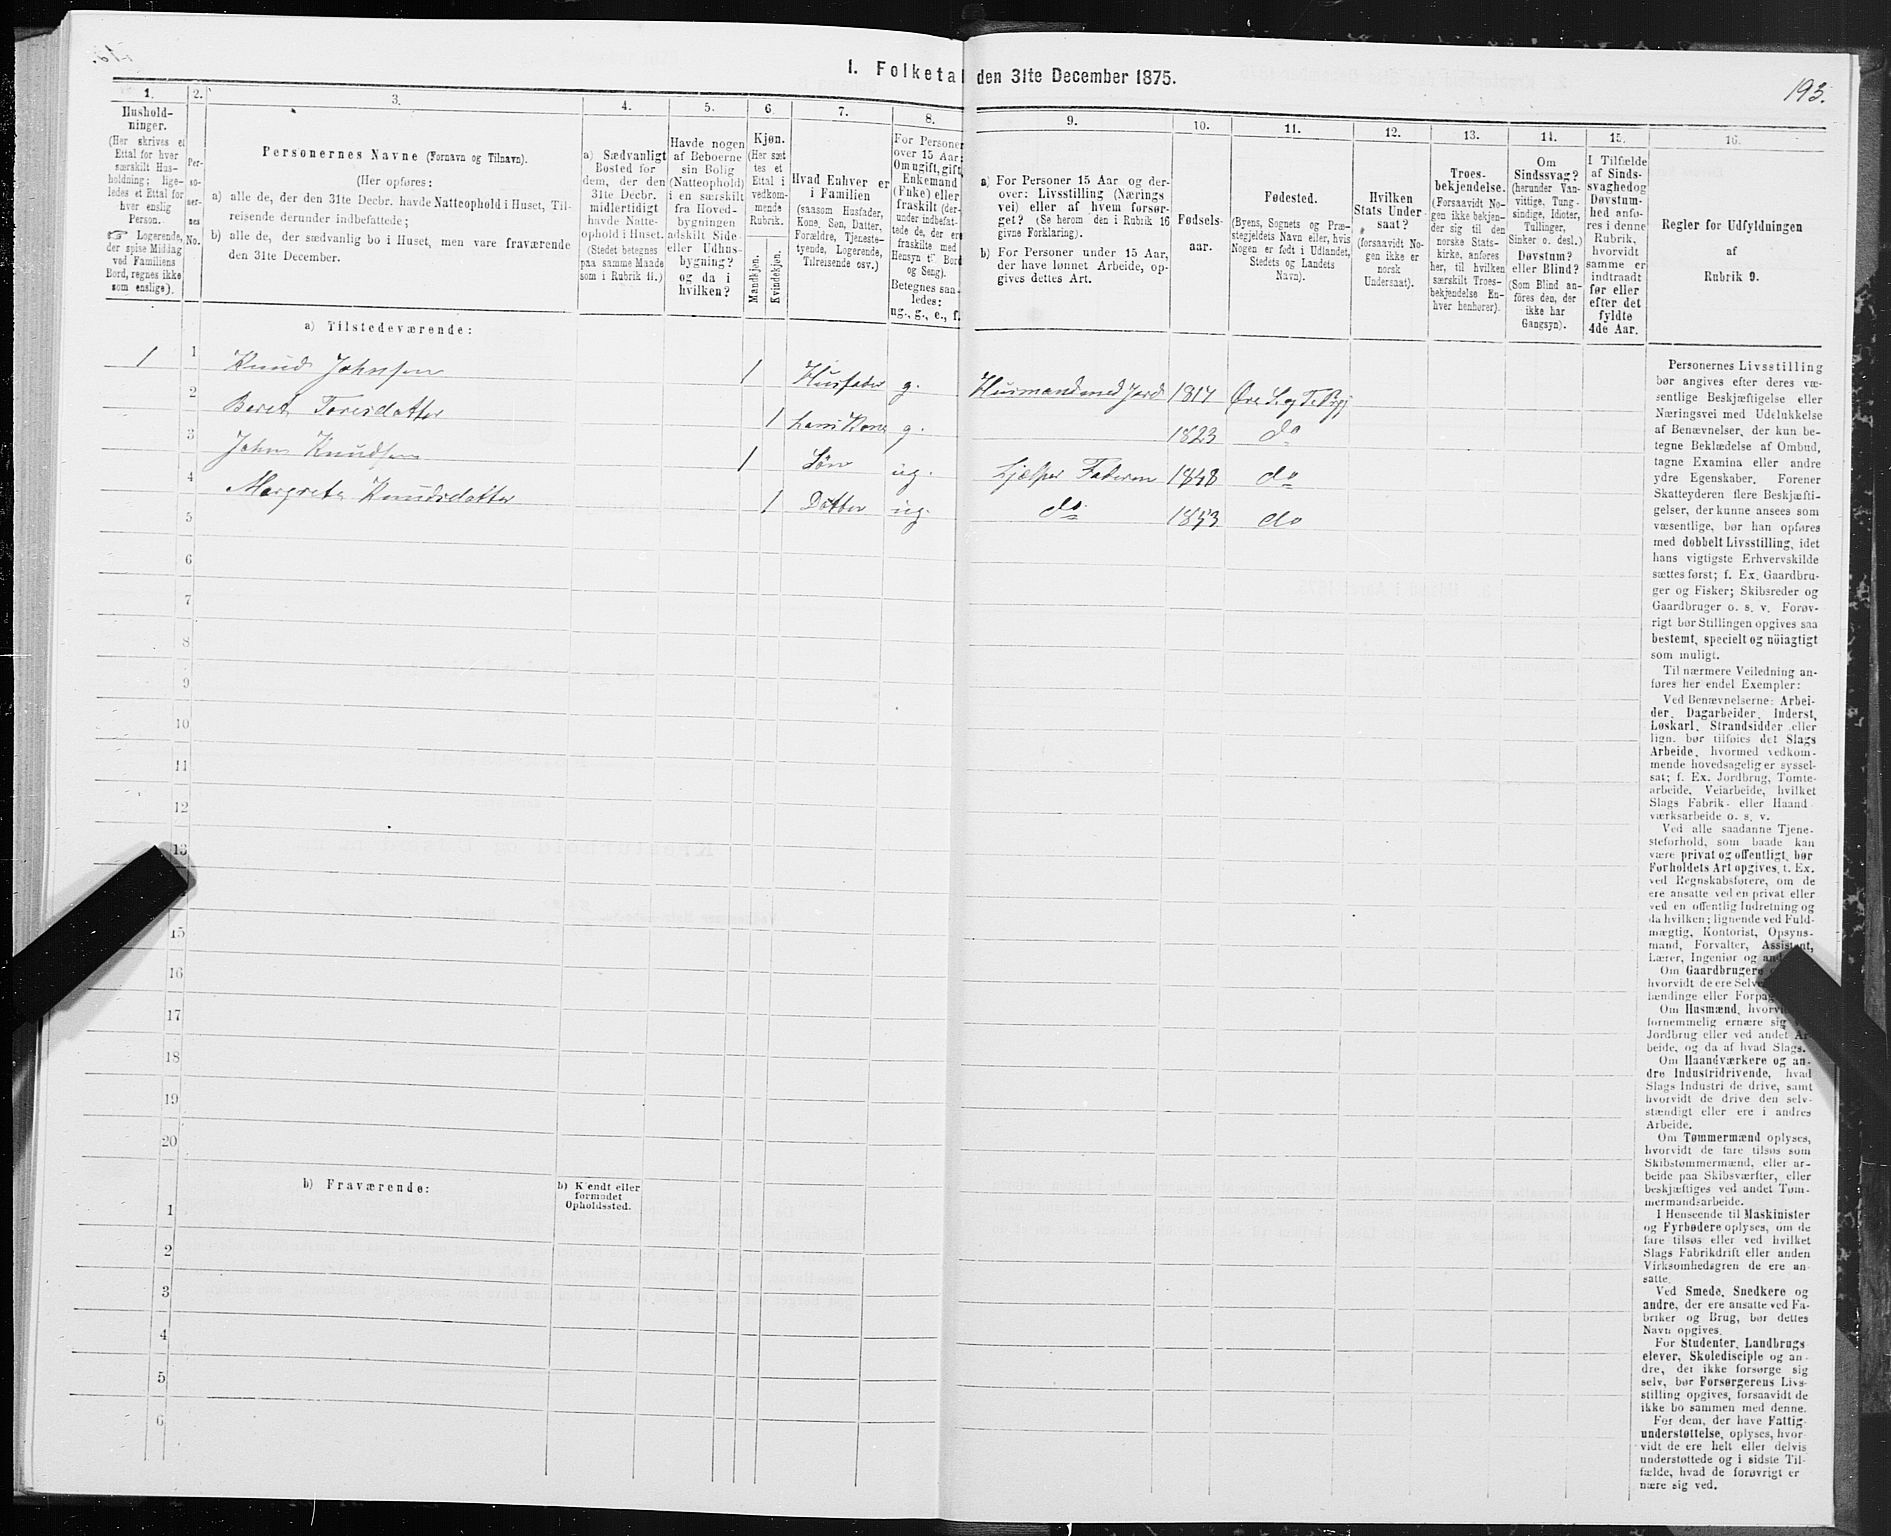 1. Folketal den 31te December 1875.
193.
1.
Hushold-
ninger.
(Her skrives et
Ettal for hver
særskilt Hus-
holdning; lige-
ledes et Ettal for
hver enslig
Person.
☞ Logerende,
der spise Middag
ved Familiens
Bord, regnes ikke
som enslige).
2.
Per-
so-
ner-
nes
No.
3.
Personernes Navne (Fornavn og Tilnavn).
(Her opføres:
a) alle de, der den 31te Decbr. havde Natteophold i Huset, Til-
reisende derunder indbefattede;
b) alle de, der sædvanlig bo i Huset, men vare fraværende
den 31te December.
4.
a) Sædvanligt
Bosted for
dem, der den
31te Decbr.
midlertidigt
havde Natte-
ophold i Huset.
(Stedet betegnes
paa samme Maade
som i Rubrik 11.)
5.
Havde nogen
af Beboerne
sin Bolig
(Natteophold)
i en særskilt
fra Hoved-
bygningen
adskilt Side-
eller Udhus-
bygning?
og da i
hvilken?
6.
Kjøn.
(Her sæt
tes et
Ettal i
vedkom-
mende
Rubrik.
Mandkjøn.
Kvindekjøn.
7.
Hvad Enhver er
i Familien
(saasom Husfader,
Kone, Søn, Datter,
Forældre, Tjeneste-
tyende, Logerende,
Tilreisende osv.)
8.
For Personer
over 15 Aar:
Om ugift, gift,
Enkemand
(Enke) eller
fraskilt (der-
under indbefat-
tede de, der ere
fraskilte med
Hensyn til Bord
og Seng).
Betegnes saa-
ledes:
ug., g., e., f.
9.
a) For Personer 15 Aar og der-
over: Livsstilling (Nærings-
vei) eller af hvem forsør-
get? (Se herom den i Rubrik 16
givne Forklaring).
b) For Personer under 15 Aar,
der have lønnet Arbeide, op-
gives dettes Art.
10.
Fødsels-
aar.
11.
Fødested.
(Byens, Sognets og Præ-
stegjeldets Navn eller, hvis
Nogen er født i Udlandet,
Stedets og Landets
Navn).
12.
Hvilken
Stats Under-
saat?
(forsaavidt No-
gen ikke er
norsk
Undersaat).
13.
Troes-
bekjendelse.
(Forsaavidt No-
gen ikke bekjen-
der sig til den
norske Stats-
kirke, anføres
her, til hvilken
særskilt Troes-
bekjendelse En-
hver henhører).
14.
Om
Sindssvag?
(herunder Van-
vittige, Tung-
sindige, Idioter,
Tullinger,
Sinker o. desl.)
Døvstum?
eller Blind?
(Som Blind an-
føres den, der
ikke har
Gangsyn).
15.
I Tilfælde
af Sinds-
svaghed og
Døvstum-
hed anfø-
res i denne
Rubrik,
hvorvidt
samme er
indtraadt
før eller
efter det
fyldte
4de Aar.
16.
Regler for Udfyldningen
af
Rubrik 9.
a) Tilstedeværende:
1 1 Knud Johnsen 1 Husfader g. Husmand med Jord 1817 Øre S. og T. Prgj
2 Beret Toresdatter 1 hans Kone g. 1823 do
3 John Knudsen 1 Søn ug. hjælper Faderen 1848 do
4 Margrete Knudsdatter 1 Datter ug. do 1853 do
5
6
7
8
9
10
11
12
13
15
16
17
18
19
20
b) Fraværende:
b) Kjendt eller
formodet
Opholdssted.
1
2
3
4
5
6
Personernes Livsstilling
bør angives efter deres væ-
sentlige Beskjæftigelse eller
Næringsvei med Udelukkelse
af Benævnelser, der kun be-
tegne Beklædelse af Ombud,
tagne Examina eller andre
ydre Egenskaber. Forener
Skatteyderen flere Beskjæfti-
gelser, der kunne ansees som
væsentlige, bør han opføres
med dobbelt Livsstilling, idet
hans vigtigste Erhvervskilde
sættes først; f. Ex. Gaardbru-
ger og Fisker; Skibsreder og
Gaardbruger o. s. v. Forøv-
rigt bør Stillingen opgives saa
bestemt, specielt og nöiagtigt
som muligt.
Til nærmere Veiledning an-
føres her endel Exempler:
Ved Benævnelserne: Arbei-
der, Dagarbeider, Inderst,
Løskarl, Strandsidder eller
lign. bør tilføies det Slags
Arbeide, hvormed vedkom-
mende hovedsagelig er syssel-
sat; f. Ex. Jordbrug, Tomte-
arbeide, Veiarbeide, hvilket
Slags Fabrik- eller Haand-
værksarbeide o. s. v.
Ved alle saadanne Tjene-
steforhold, som baade kan
være privat og offentligt, bør
Forholdets Art opgives, f. Ex.
ved Regnskabsførere, om de
ere ansatte ved en privat eller
ved en offentlig Indretning og
da hvilken; lignende ved Fuld-
mægtig, Kontorist, Opsyns-
mand, Forvalter, Assistent,
Lærer, Ingeniør og
Om Gaardbrugere
hvorvidt de ere
lændinge eller
Om Husmænd,
fornemmelig ernære sig
Jordbrug eller ved andet Ar-
beide, og da af hvad Slags.
Om Haandværkere og an-
dre Industridrivende, hvad
Slags Industri de drive, samt
hvorvidt de drive den selv-
stændigt eller ere i andres
Arbeide.
Om Tømmermænd oplyses,
hvorvidt de fare tilsøs som
Skibstømmermænd, eller ar-
beide paa Skibsværfter, eller
beskjæftiges ved andet Tøm-
mermandsarbeide.
I Henseende til Maskinister
og Fyrbødere oplyses, om de
fare tilsøs eller ved hvilket
Slags Fabrikdrift eller anden
Virksomhedsgren de ere an-
satte.
Ved Smede, Snedkere og
andre, der ere ansatte ved Fa-
briker og Brug, bør dettes
Navn opgives.
For Studenter, Landbrugs-
elever, Skoledisciple og an-
dre, der ikke forsørge sig
selv, bør Forsørgerens Livs-
stilling opgives, forsaavidt de
ikke bo sammen med denne.
For dem, der have Fattig-
understøttelse, oplyses, hvor-
vidt de ere helt eller delvis
understøttede og i sidste Til-
fælde, hvad de forøvrigt er-
nære sig ved.